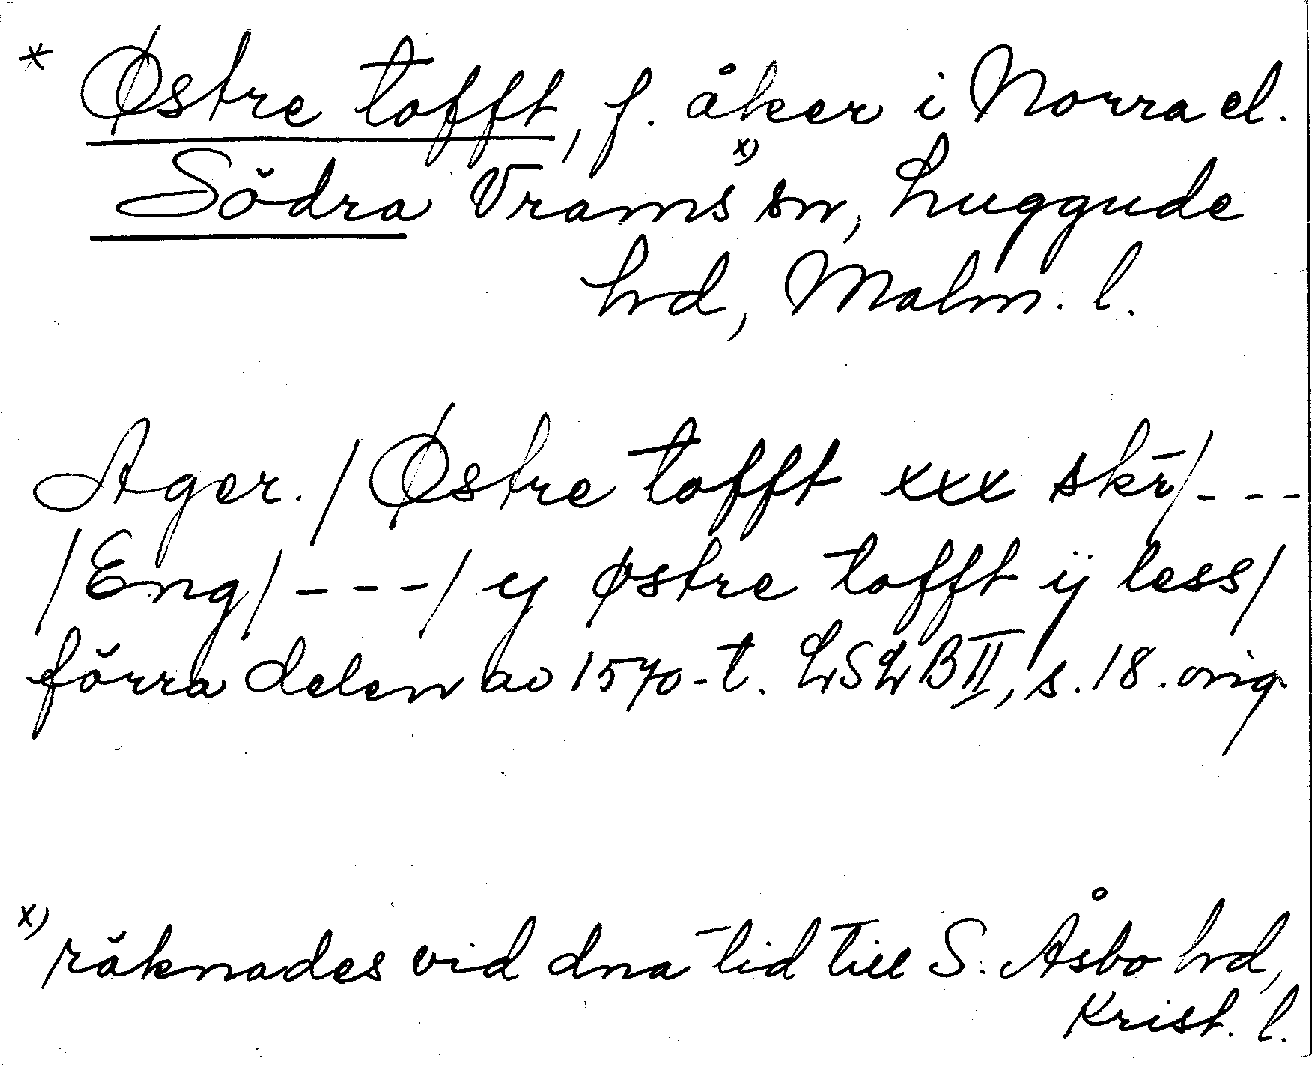 * Østre tofft, f. åker i Norra el.
Södra Vrams x) sn, Luggude
hd, Malm. l.
Ager. / Østre tofft xxx skr̄/ - - -
/Eng/ - - - / y østre tofft ij less/
förra delen av 1570-t. LSLB II, s. 18. orig.
x) räknades vid dna tid till S. Åsbo hd,
Krist. l.